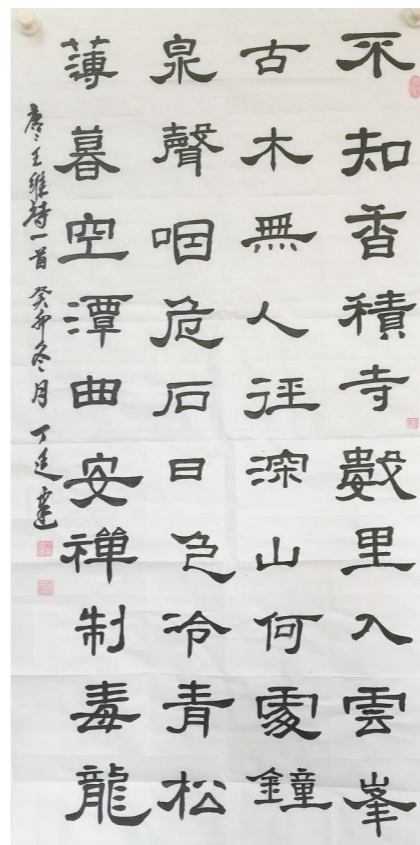 不知香積寺數里入雲峯
古木無人徑深山何處鐘
泉聲咽危石日色冷青松
薄暮空潭曲安禪制毒龍
唐王維詩一首 癸卯冬月